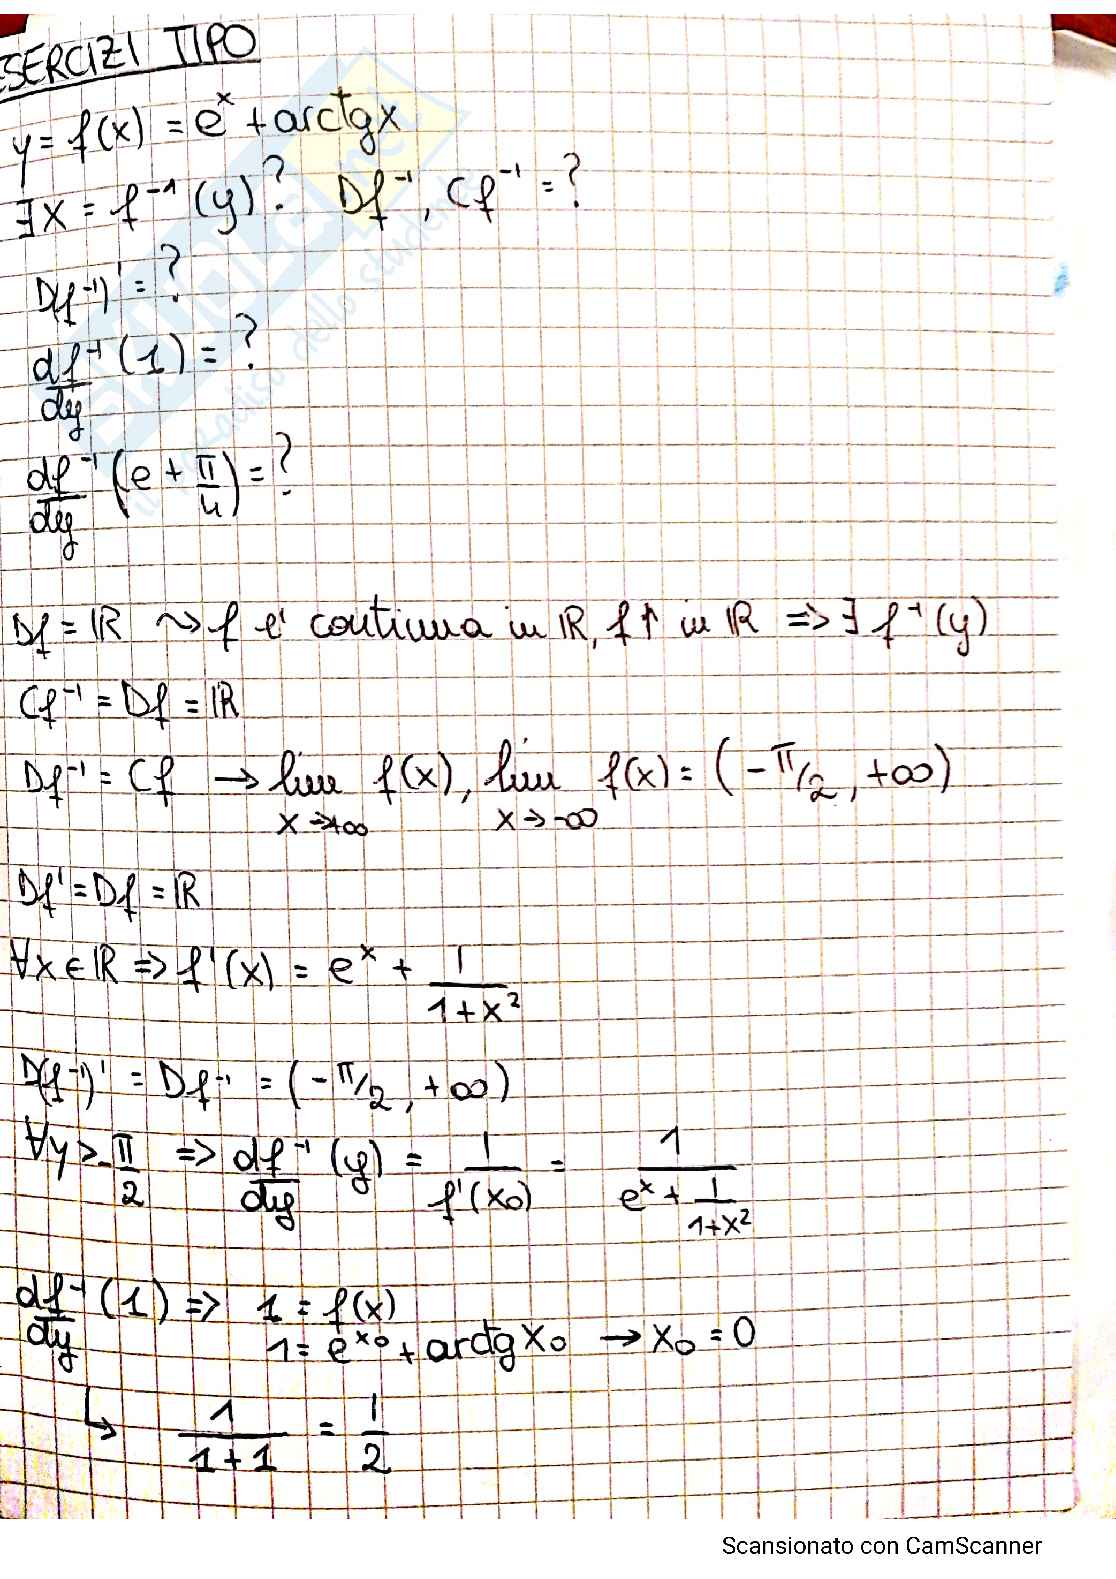 ESERCIZI TIPO
y = f(x) = e^x + arctgx
∃x = f^-1 (y)? Df^-1, Cf^-1 = ?
D(f^-1)' = ?
df^-1/dy (1) = ?
df^-1/dy (e + π/4) = ?
Df = ℝ ⤳ f è continua in ℝ, f↑ in ℝ => ∃ f^-1(y)
Cf^-1 = Df = ℝ
Df^-1 = Cf → lim x→+∞ f(x), lim x→-∞ f(x) = (-π/2, +∞)
Df' = Df = ℝ
∀x ∈ ℝ => f'(x) = e^x + 1/(1+x^2)
D(f^-1)' = Df^-1 = (-π/2, +∞)
∀y > -π/2 => df^-1/dy (y) = 1/f'(x0) = 1/(e^x + 1/(1+x^2))
df^-1/dy (1) => 1 = f(x)
1 = e^x0 + arctgx0 → x0 = 0
↳ 1/(1+1) = 1/2
Scansionato con CamScanner